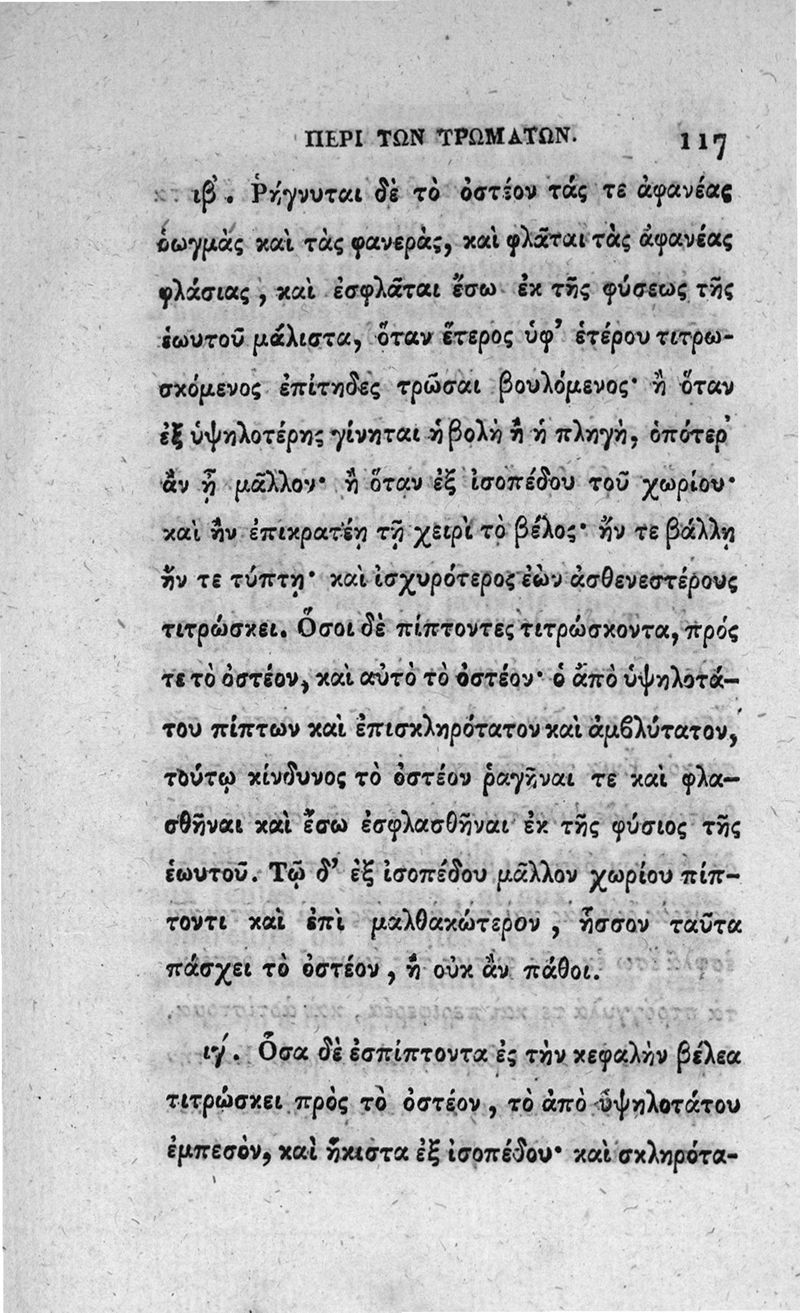 ΠΕΡΙ ΤΩΝ ΤΡΩΜΑΤΩΝ. 117
ιβ΄. Ῥήγνυται δὲ τὸ ὀστέον τάς τε ἀφανέας
ῥωγμὰς καὶ τὰς φανερὰς, καὶ φλᾶται τὰς ἀφανέας
φλάσιας, καὶ ἐσφλᾶται ἔσω ἐκ τῆς φύσεως τῆς
ἑωυτοῦ μάλιστα, ὅταν ἕτερος ὑφ’ ἑτέρου τιτρω-
σκόμενος ἐπίτηδες τρῶσαι βουλόμενος· ἢ ὅταν
ἐξ ὑψηλοτέρης γίνηται ἡ βολὴ ἢ ἡ πληγὴ, ὁπότερ’
ἂν ᾖ μᾶλλον· ἢ ὅταν ἐξ ἰσοπέδου τοῦ χωρίου·
καὶ ἢν ἐπικρατέῃ τῇ χειρὶ τὸ βέλος· ἤν τε βάλλῃ
ἤν τε τύπτῃ· καὶ ἰσχυρότερος ἐὼν ἀσθενεστέρους
τιτρώσκει. Ὅσοι δὲ πίπτοντες τιτρώσκοντα, πρός
τε τὸ ὀστέον, καὶ αὐτὸ τὸ ὀστέον· ὁ ἀπὸ ὑψηλοτά-
του πίπτων καὶ ἐπισκληρότατον καὶ ἀμβλύτατον,
τούτῳ κίνδυνος τὸ ὀστέον ῥαγῆναι τε καὶ φλα-
σθῆναι καὶ ἔσω ἐσφλασθῆναι ἐκ τῆς φύσιος τῆς
ἑωυτοῦ. Τῷ δ’ ἐξ ἰσοπέδου μᾶλλον χωρίου πίπ-
τοντι καὶ ἐπὶ μαλθακώτερον, ἧσσον ταῦτα
πάσχει τὸ ὀστέον, ἢ οὐκ ἂν πάθοι.
ιγ΄. Ὅσα δὲ ἐσπίπτοντα ἐς τὴν κεφαλὴν βέλεα
τιτρώσκει πρὸς τὸ ὀστέον, τὸ ἀπὸ ὑψηλοτάτου
ἐμπεσὸν, καὶ ἥκιστα ἐξ ἰσοπέδου· καὶ σκληρότα-